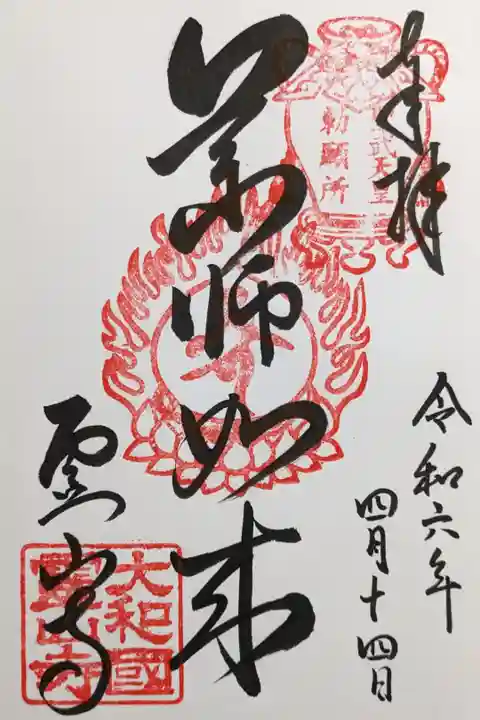 奉拝
武天皇
勅願所
令和六年
四月十四日
薬師如来
霊山寺
大和國
靈山寺